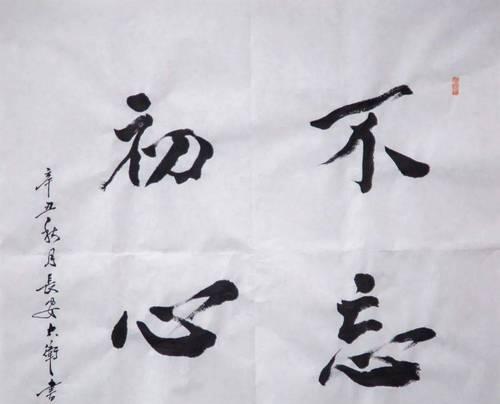 不忘
初心
辛丑秋月長安大衛書